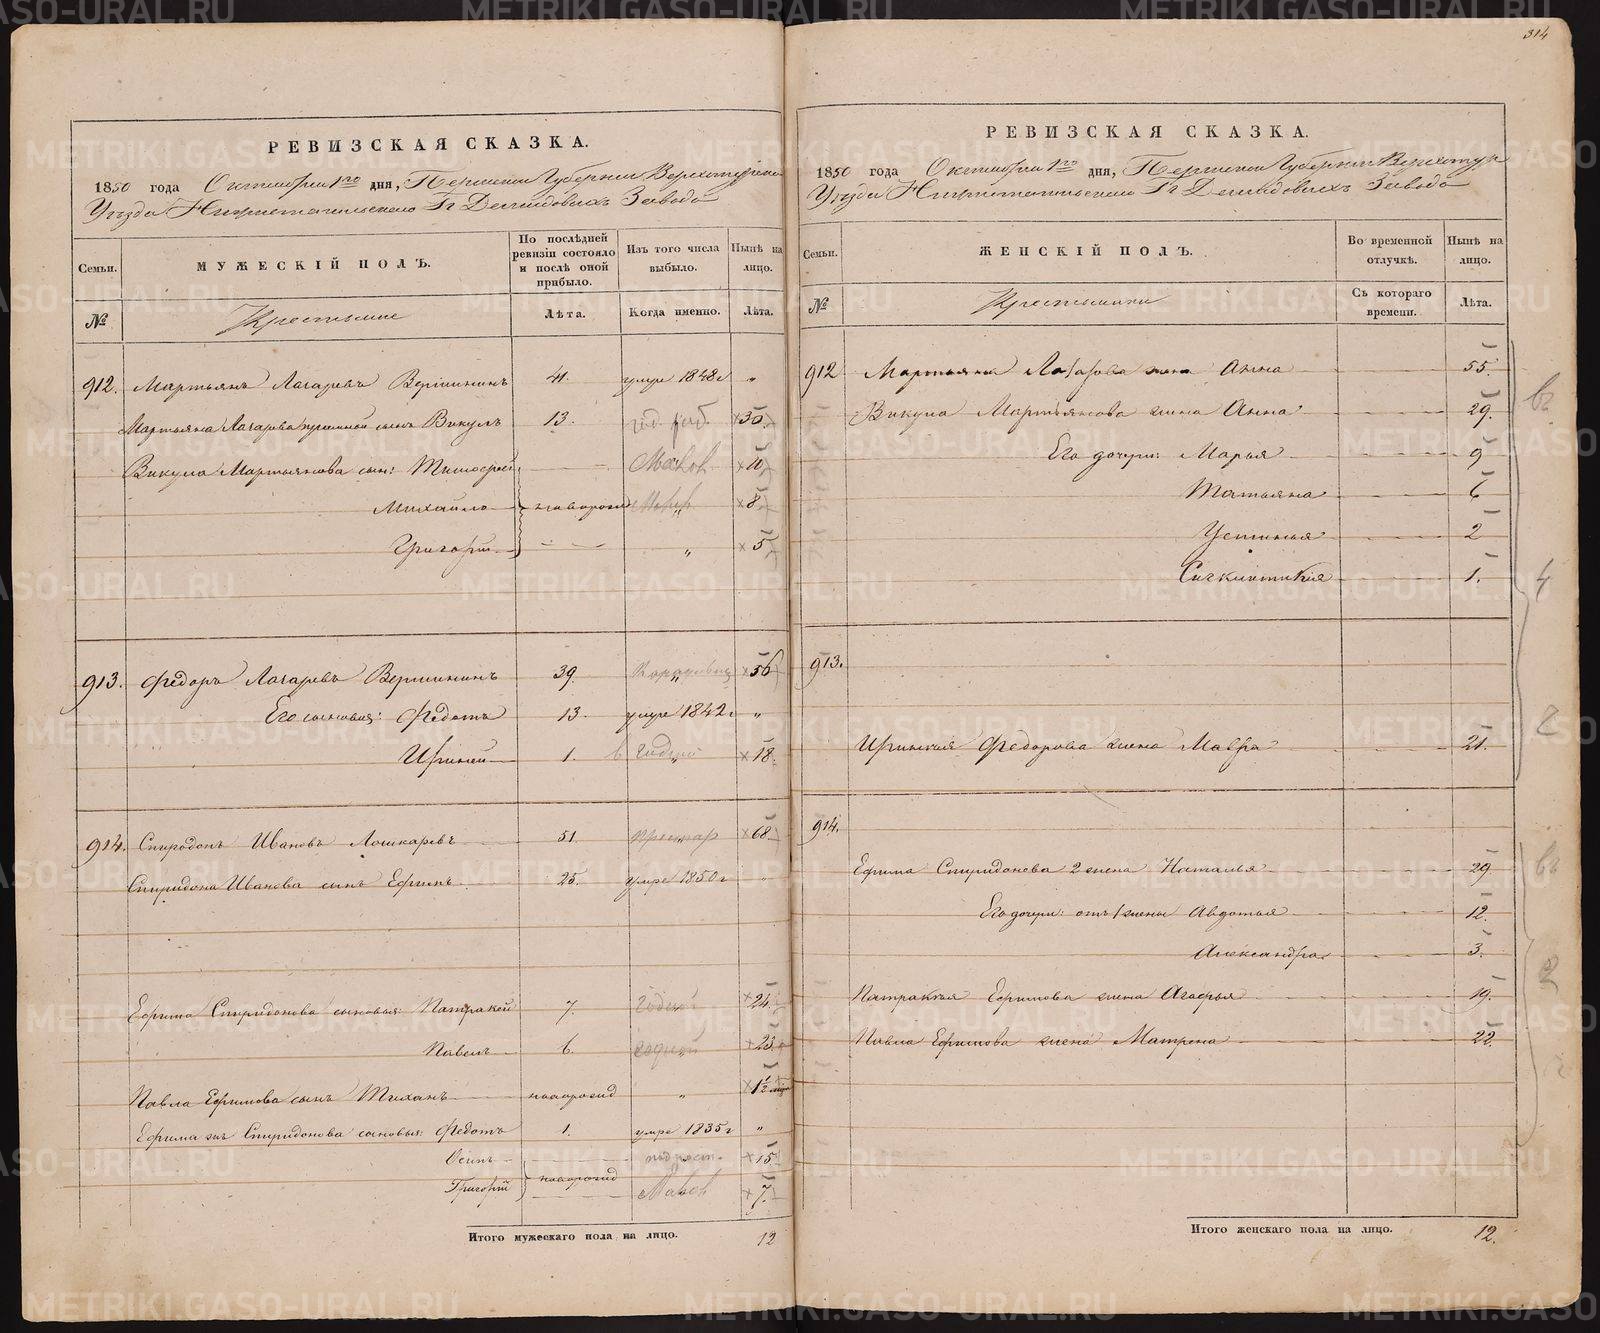 314
РЕВИЗСКАЯ СКАЗКА.
1850 года Октября 1го дня, Пермской Губернии Верхотурскаго
Уѣзда Нижнетагильскаго Гг Демидовыхъ Завода
Семьи.
МУЖЕСКІЙ ПОЛЪ.
По послѣдней ревизіи состояло и послѣ оной прибыло.
Изъ того числа выбыло.
Нынѣ на лицо.
№
Крестьяне
Лѣта.
Когда именно.
Лѣта.
912. Мартьянъ Лазаревъ Вершининъ 41. умре 1848 г „
Мартьяна Лазарева сынъ Викулъ 13. ×30.
Викула Мартьянова сын: Тимофей ×10
Михайло новорожд ×8
Григорій „ ×5
913. Федоръ Лазаревъ Вершининъ 39. ×56
Его сыновья: Федотъ 13. умре 1842 г „
Ириней 1. ×18.
914. Спиридонъ Ивановъ Лошкаревъ 51. престар ×68
Спиридона Иванова сынъ Ефимъ 25. умре 1850 г „
Ефима Спиридонова сыновья: Патракей 7. годной ×24
Павелъ 6. годной ×23
Павла Ефимова сынъ Тиханъ новорожд „ ×1½
Ефима жъ Спиридонова сыновья: Федотъ 1. умре 1835 г „
Осипъ ×15
Григорій новорожд ×7.
Итого мужескаго пола на лицо. 12
РЕВИЗСКАЯ СКАЗКА.
1850 года Октября 1го дня, Пермской Губернии Верхотур
Уѣзда Нижнетагильскаго Гг Демидовыхъ Завода
Семьи.
ЖЕНСКІЙ ПОЛЪ.
Во временной отлучкѣ.
Нынѣ на лицо.
№
Крестьянки
Съ котораго времени.
Лѣта.
912 Мартьяна Лазарева жена Анна 55.
Викула Мартьянова жена Анна 29.
Его дочери: Марья 9
Татьяна 6
Устинья 2
Синклитикія 1.
913.
Иринея Федорова жена Мавра 21.
914.
Ефима Спиридонова 2 жена Наталья 29
Его дочери: отъ 1 жены Авдотья 12.
Александра 3.
Патракея Ефимова жена Агафья 19.
Павла Ефимова жена Матрена 22.
Итого женскаго пола на лицо. 12.
METRIKI.GASO-URAL.RU